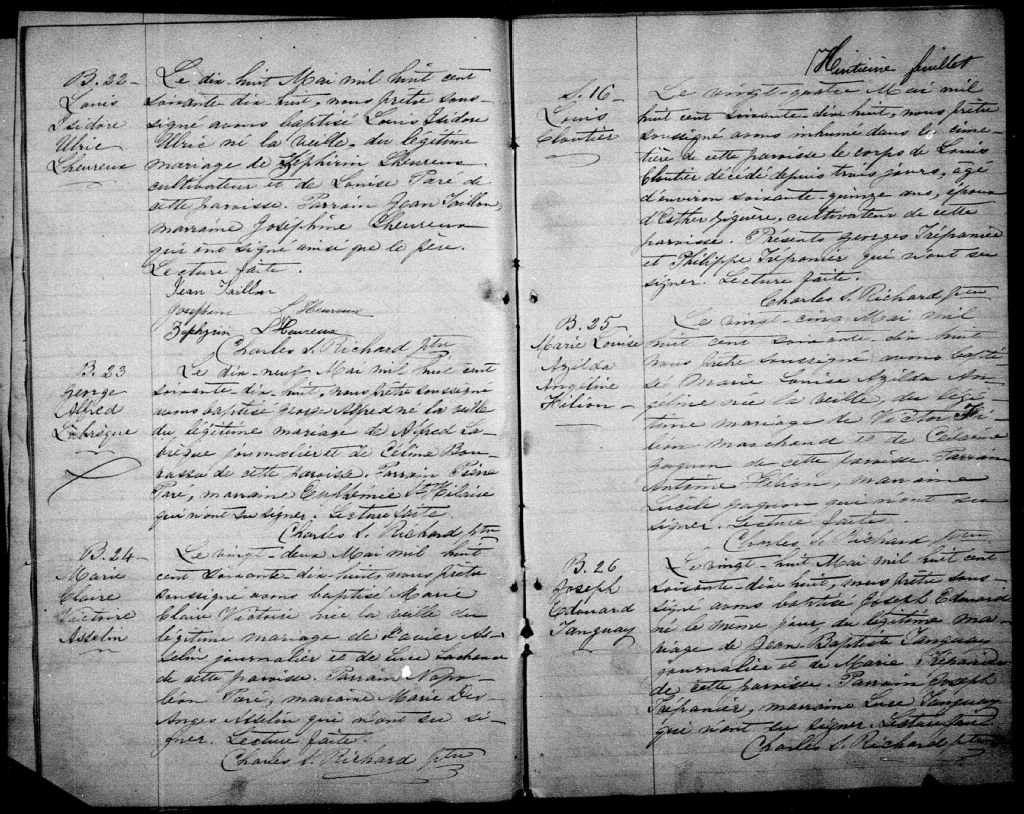 B. 22
Louis
Isidore
Ulric
Lheureux
Le dix-huit Mai mil huit cent
soixante-dix-huit, nous prêtre sous-
signé avons baptisé Louis Isidore
Ulric né la veille, du légitime
mariage de Zéphirin Lheureux
cultivateur et de Louise Paré de
cette paroisse. Parrain Jean Taillon,
marraine Joséphine Lheureux
qui ont signé ainsi que le père.
Lecture faite.
Jean Taillon
Josephine L'Heureux
Zéphyrin L'Heureux
Charles S. Richard ptre
B. 23
George
Alfred
Labrèque
Le dix-neuf Mai mil huit cent
soixante-dix-huit, nous prêtre soussigné
avons baptisé George Alfred né la veille
du légitime mariage de Alfred La-
brèque journalier et de Célina Bou-
rassa de cette paroisse. Parrain Pierre
Paré, marraine Euphémie St Hilaire
qui n'ont su signer. Lecture faite.
Charles S. Richard ptre
B. 24
Marie
Claire
Victoire
Asselin
Le vingt-deux Mai mil huit
cent soixante-dix-huit, nous prêtre
soussigné avons baptisé Marie
Claire Victoire née la veille du
légitime mariage de Xavier As-
selin journalier et de Luce Lachance
de cette paroisse. Parrain Napo-
léon Paré, marraine Marie Des
Anges Asselin qui n'ont su si-
gner. Lecture faite.
Charles S. Richard ptre
Huitième feuillet
S. 16
Louis
Cloutier
Le vingt-quatre Mai mil
huit cent soixante-dix-huit, nous prêtre
soussigné avons inhumé dans le cime-
tière de cette paroisse le corps de Louis
Cloutier décédé depuis trois jours, âgé
d'environ soixante-quinze ans, époux
d'Esther Giguère, cultivateur de cette
paroisse. Présents Georges Trépanier
et Philippe Trépanier qui n'ont su
signer. Lecture faite.
Charles S. Richard ptre
B. 25
Marie Louise
Azilda
Angeline
Filion
Le vingt-cinq Mai mil
huit cent soixante-dix-huit
nous prêtre soussigné avons bapti-
sé Marie Louise Azilda An-
geline née la veille, du légi-
time mariage de Victor Fi-
lion marchand et de Césarine
Gagnon de cette paroisse. Parrain
Antoine Filion, marraine
Lucile Gagnon qui n'ont su
signer. Lecture faite.
Charles S. Richard ptre
B. 26
Joseph
Edouard
Tanguay
Le vingt-huit Mai mil huit cent
soixante-dix-huit, nous prêtre sous-
signé avons baptisé Joseph Edouard
né le même jour du légitime ma-
riage de Jean Baptiste Tanguay
journalier et de Marie Trépanier
de cette paroisse. Parrain Joseph
Trépanier, marraine Luce Tanguay
qui n'ont su signer. Lecture faite
Charles S. Richard ptre